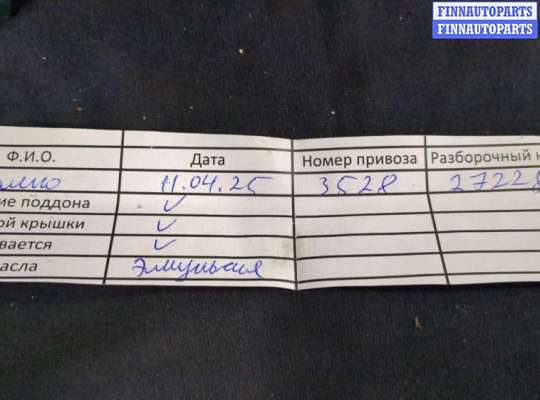 FINNAUTOPARTS
FINNAUTOPARTS
Ф.И.О. Дата Номер привоза Разборочный н
11.04.25 3528 27228
ие поддона ✓
ой крышки ✓
вается ✓
асла Эмульсия